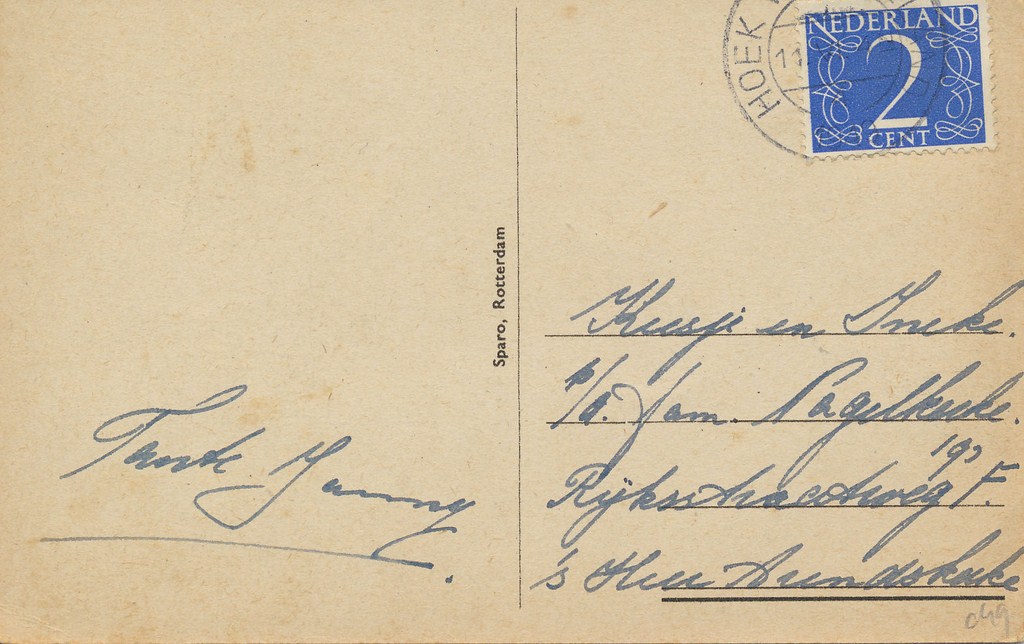 HOEK
11
NEDERLAND
2
CENT
Sparo, Rotterdam
Tante Janny
Keesje en Ineke.
p/a. Fam. Pagelkeke.
Rijksstraatweg 193 F.
's Heer Arendskerke